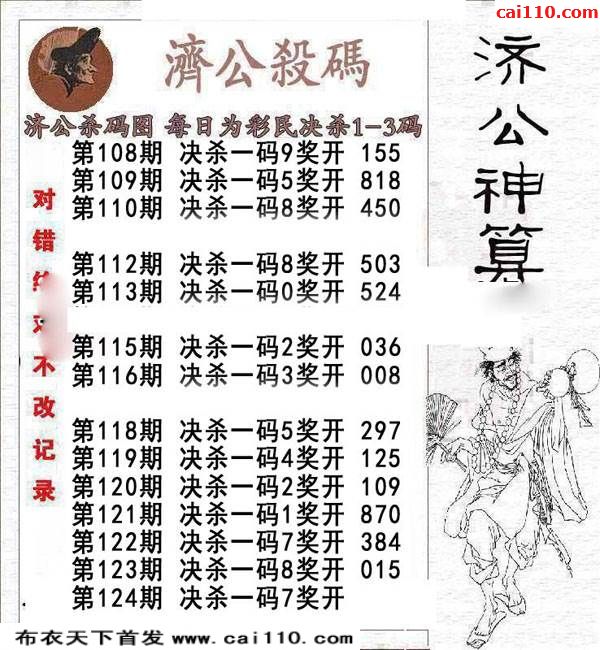 cai110.com
濟公殺碼
济公杀码图 每日为彩民决杀1-3码
第108期 决杀一码9奖开 155
第109期 决杀一码5奖开 818
第110期 决杀一码8奖开 450
第112期 决杀一码8奖开 503
第113期 决杀一码0奖开 524
第115期 决杀一码2奖开 036
第116期 决杀一码3奖开 008
第118期 决杀一码5奖开 297
第119期 决杀一码4奖开 125
第120期 决杀一码2奖开 109
第121期 决杀一码1奖开 870
第122期 决杀一码7奖开 384
第123期 决杀一码8奖开 015
第124期 决杀一码7奖开
对错
不改记录
济公神算
布衣天下首发 www.cai110.com